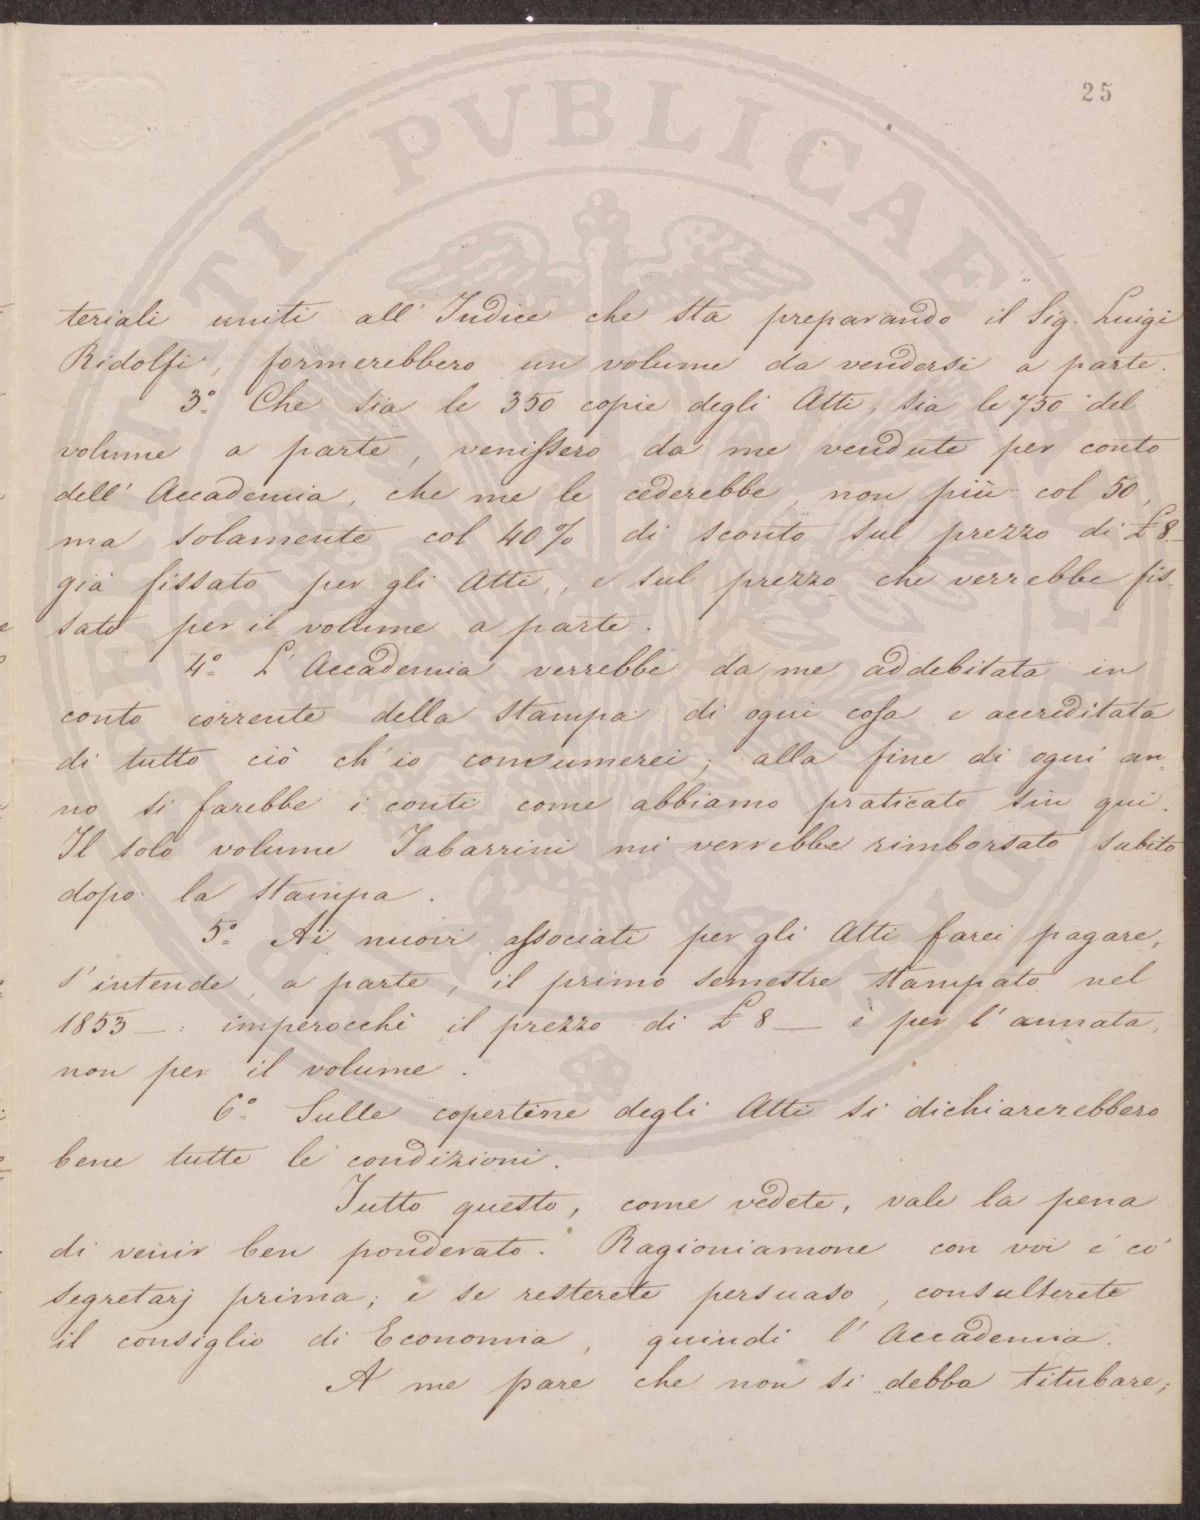 25
teriali uniti all' Indice che sta preparando il Sig. Luigi
Ridolfi, formerebbero un volume da vendersi a parte.
3º Che sia le 350 copie degli Atti, sia le 750 del
volume a parte, venissero da me vendute per conto
dell' Accademia, che me le cederebbe, non più col 50,
ma solamente col 40% di sconto sul prezzo di £ 8_
già fissato per gli Atti, e sul prezzo che verrebbe fis-
sato per il volume a parte.
4º L'Accademia verrebbe da me addebitata in
conto corrente della stampa di ogni cosa e accreditata
di tutto ciò ch'io consumerei; alla fine di ogni an-
no si farebbe i conti come abbiamo praticato sin qui.
Il solo volume Tabarrini mi verrebbe rimborsato subito
dopo la stampa.
5º Ai nuovi associati per gli Atti farei pagare,
s'intende, a parte, il primo semestre stampato nel
1853_: imperocchè il prezzo di £ 8_ è per l'annata,
non per il volume.
6º Sulle copertine degli Atti si dichiarerebbero
bene tutte le condizioni.
Tutto questo, come vedete, vale la pena
di venir ben ponderato. Ragioniamone con voi e co'
segretarj prima; e se resterete persuaso, consulterete
il consiglio di Economia, quindi l'Accademia.
A me pare che non si debba titubare;
PUBLICAE